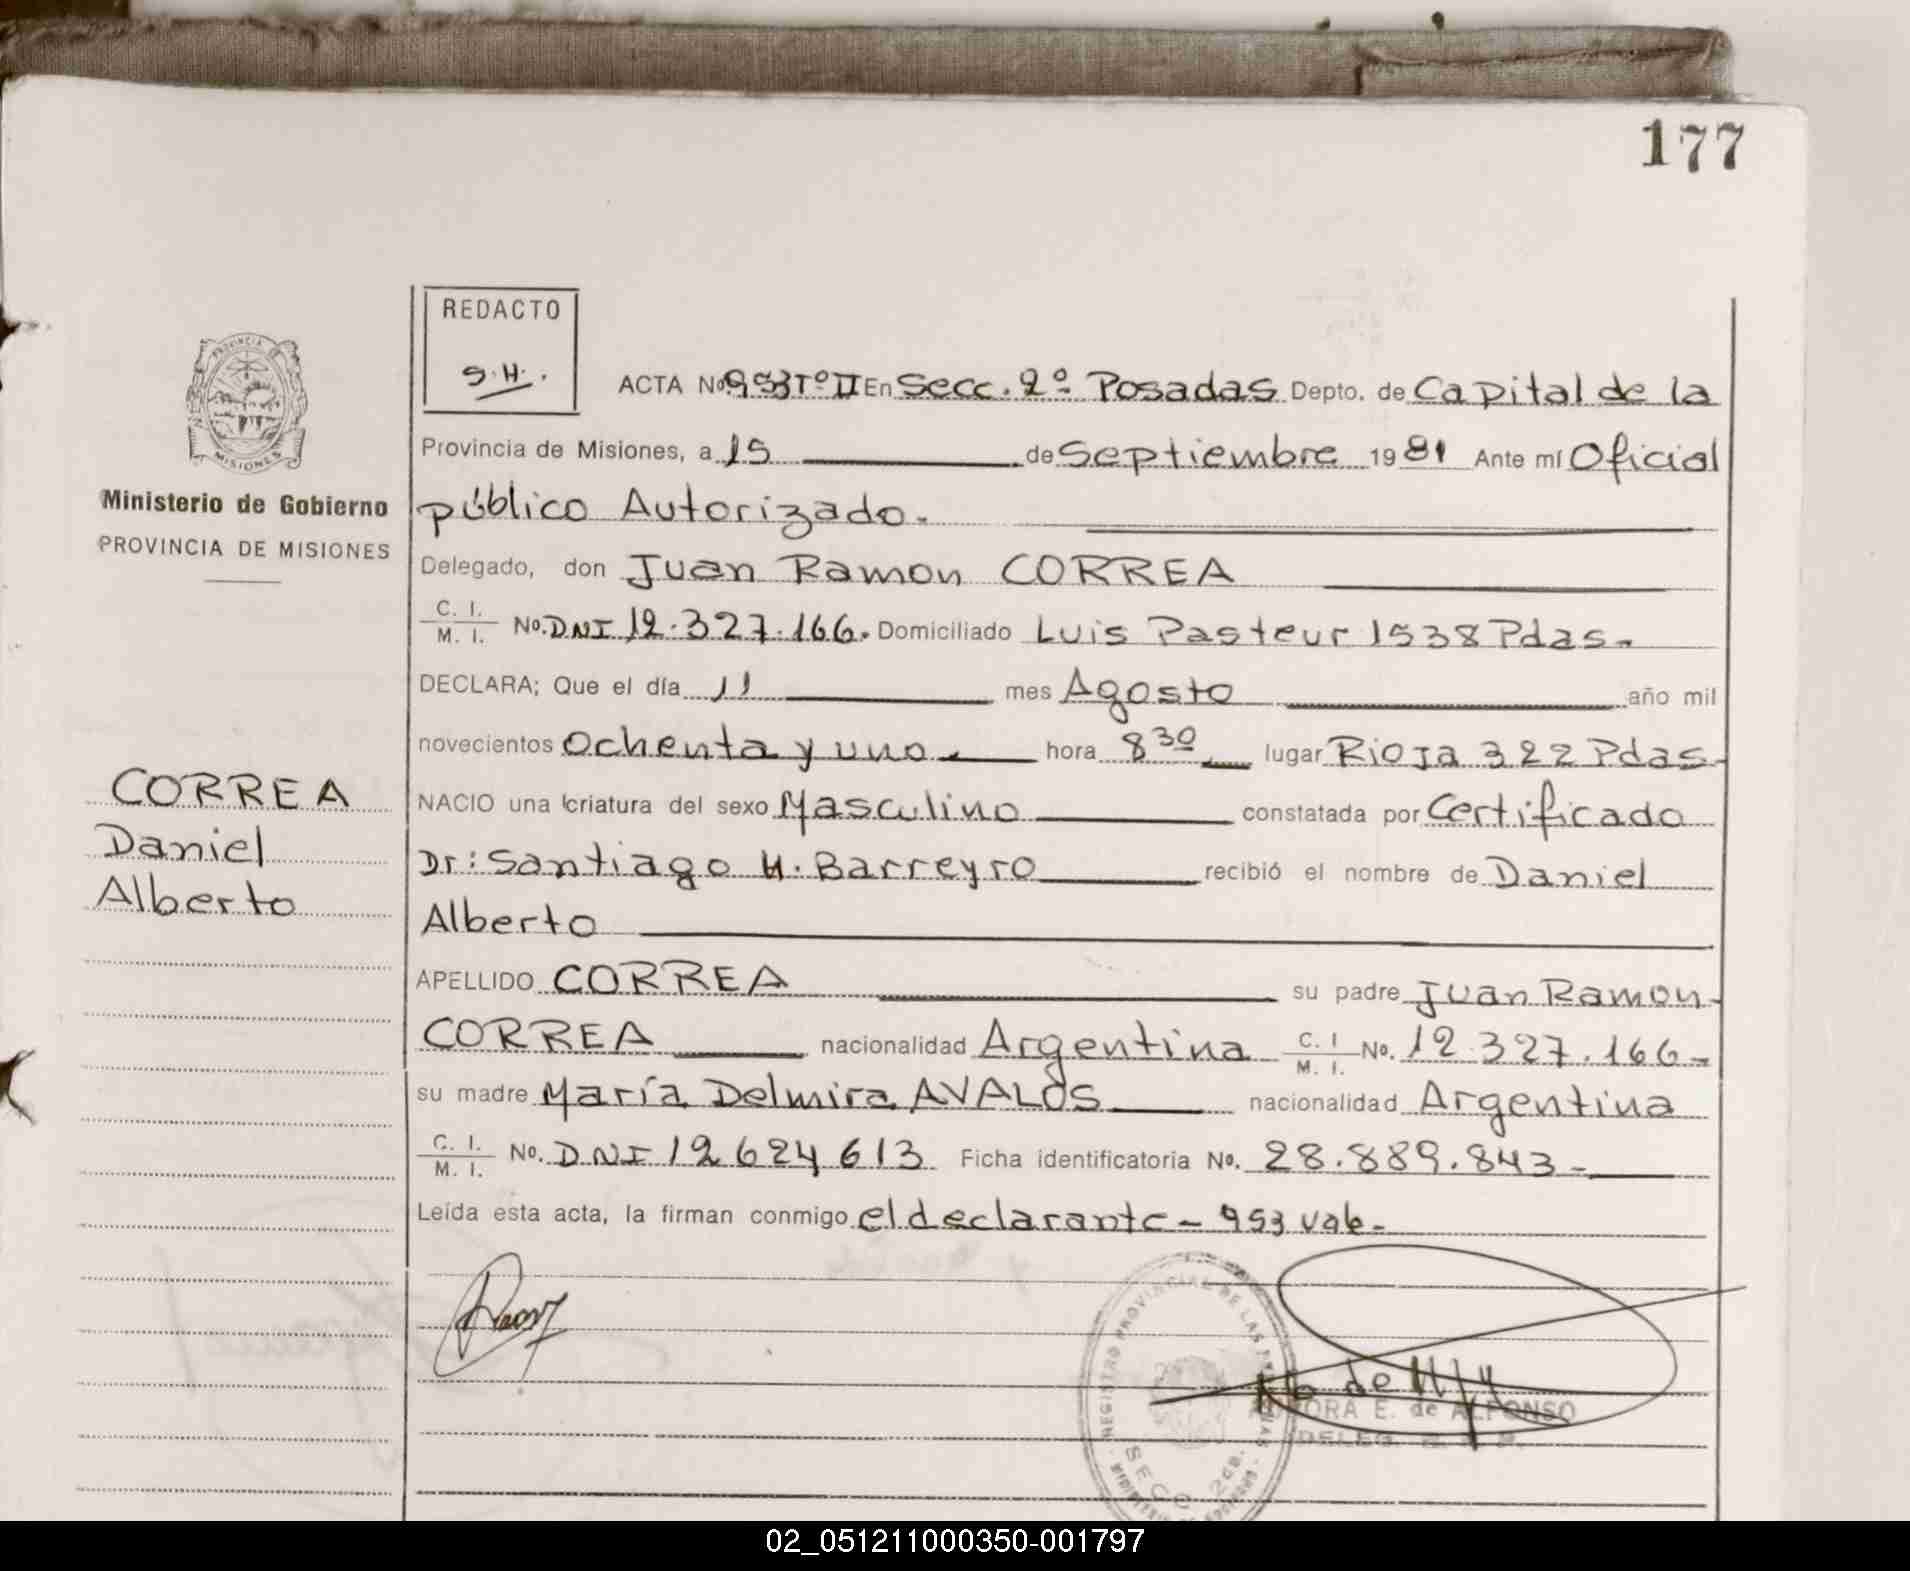 177
REDACTO
S.H.
ACTA No 953 Tº II En Secc. 2º Posadas Depto. de Capital de la
Provincia de Misiones, a 15 de Septiembre 1981 Ante mí Oficial
público Autorizado.
Delegado, don Juan Ramon CORREA
C. I. M. I. No. DNI 12.327.166. Domiciliado Luis Pasteur 1538 Pdas.
DECLARA; Que el día 11 mes Agosto año mil
novecientos Ochenta y uno hora 8 30 lugar Rioja 322 Pdas
NACIO una criatura del sexo Masculino constatada por Certificado
Dr: Santiago H. Barreyro recibió el nombre de Daniel
Alberto
APELLIDO CORREA su padre Juan Ramon
CORREA nacionalidad Argentina C. I M. I. No. 12.327.166
su madre María Delmira AVALOS nacionalidad Argentina
C. I. M. I. No. DNI 12 624 613 Ficha identificatoria No. 28.889.843
Leída esta acta, la firman conmigo el declarante - 953 vale-
PROVINCIA DE
MISIONES
Ministerio de Gobierno
PROVINCIA DE MISIONES
CORREA
Daniel
Alberto
REGISTRO PROVINCIAL DE LAS PERSONAS
SECC 2da.
E. de ALFONSO
02_051211000350-001797